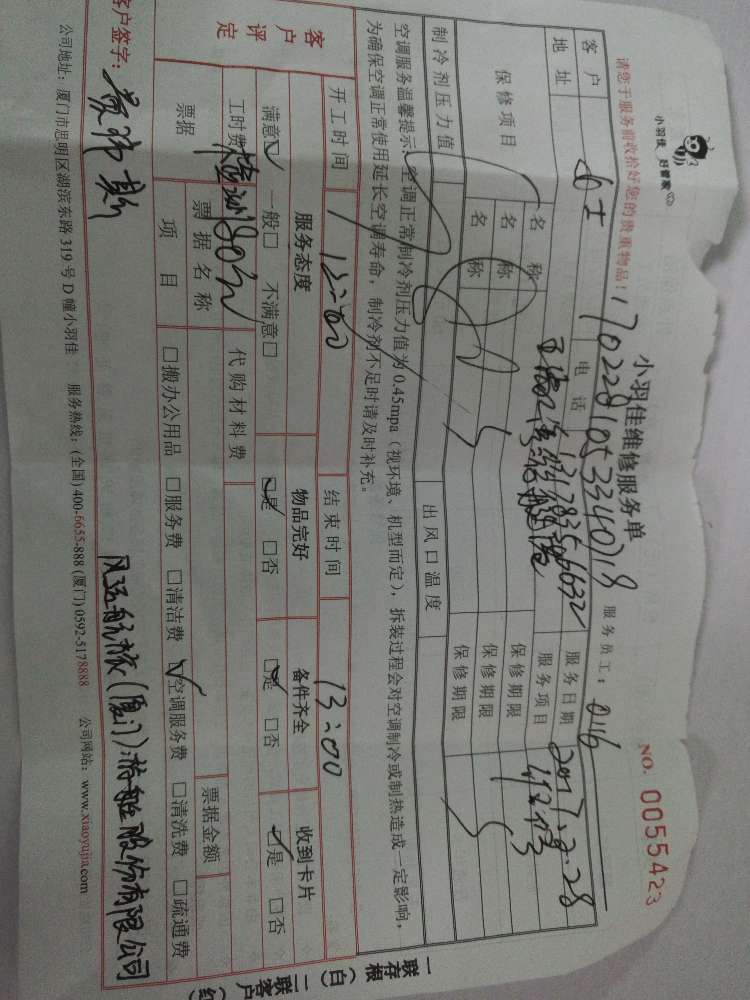 小羽佳 好管家
小羽佳维修服务单
NO. 0055423
请您于服务前收拾好您的贵重物品!
服务员工: 0116
客户 电话 服务日期 2017.2.28
地址 服务项目
保修项目 名称 保修期限
名称 保修期限
名称 保修期限
制冷剂压力值 出风口温度
空调服务温馨提示:空调正常制冷剂压力值为0.45mpa(视环境、机型而定),拆装过程会对空调制冷或制热造成一定影响,
为确保空调正常使用延长空调寿命,制冷剂不足时请及时补充。
开工时间 12:00 结束时间 13:00
客户评定 服务态度 物品完好 备件齐全 收到卡片
满意☑ 一般□ 不满意□ ☑是 □否 ☑是 □否 ☑是 □否
工时费 检测80元 代购材料费
票据 票据名称 票据金额
项目 □搬办公用品 □服务费 □清洁费 ☑空调服务费 □清洗费 □疏通费
客户签字: 风远航旅(厦门)游艇股份有限公司
公司地址:厦门市思明区湖滨东路319号D幢小羽佳 服务热线:(全国)400-6655-888 (厦门)0592-5178888 公司网站:www.xiaoyujia.com
一联存根(白) 二联客户(红